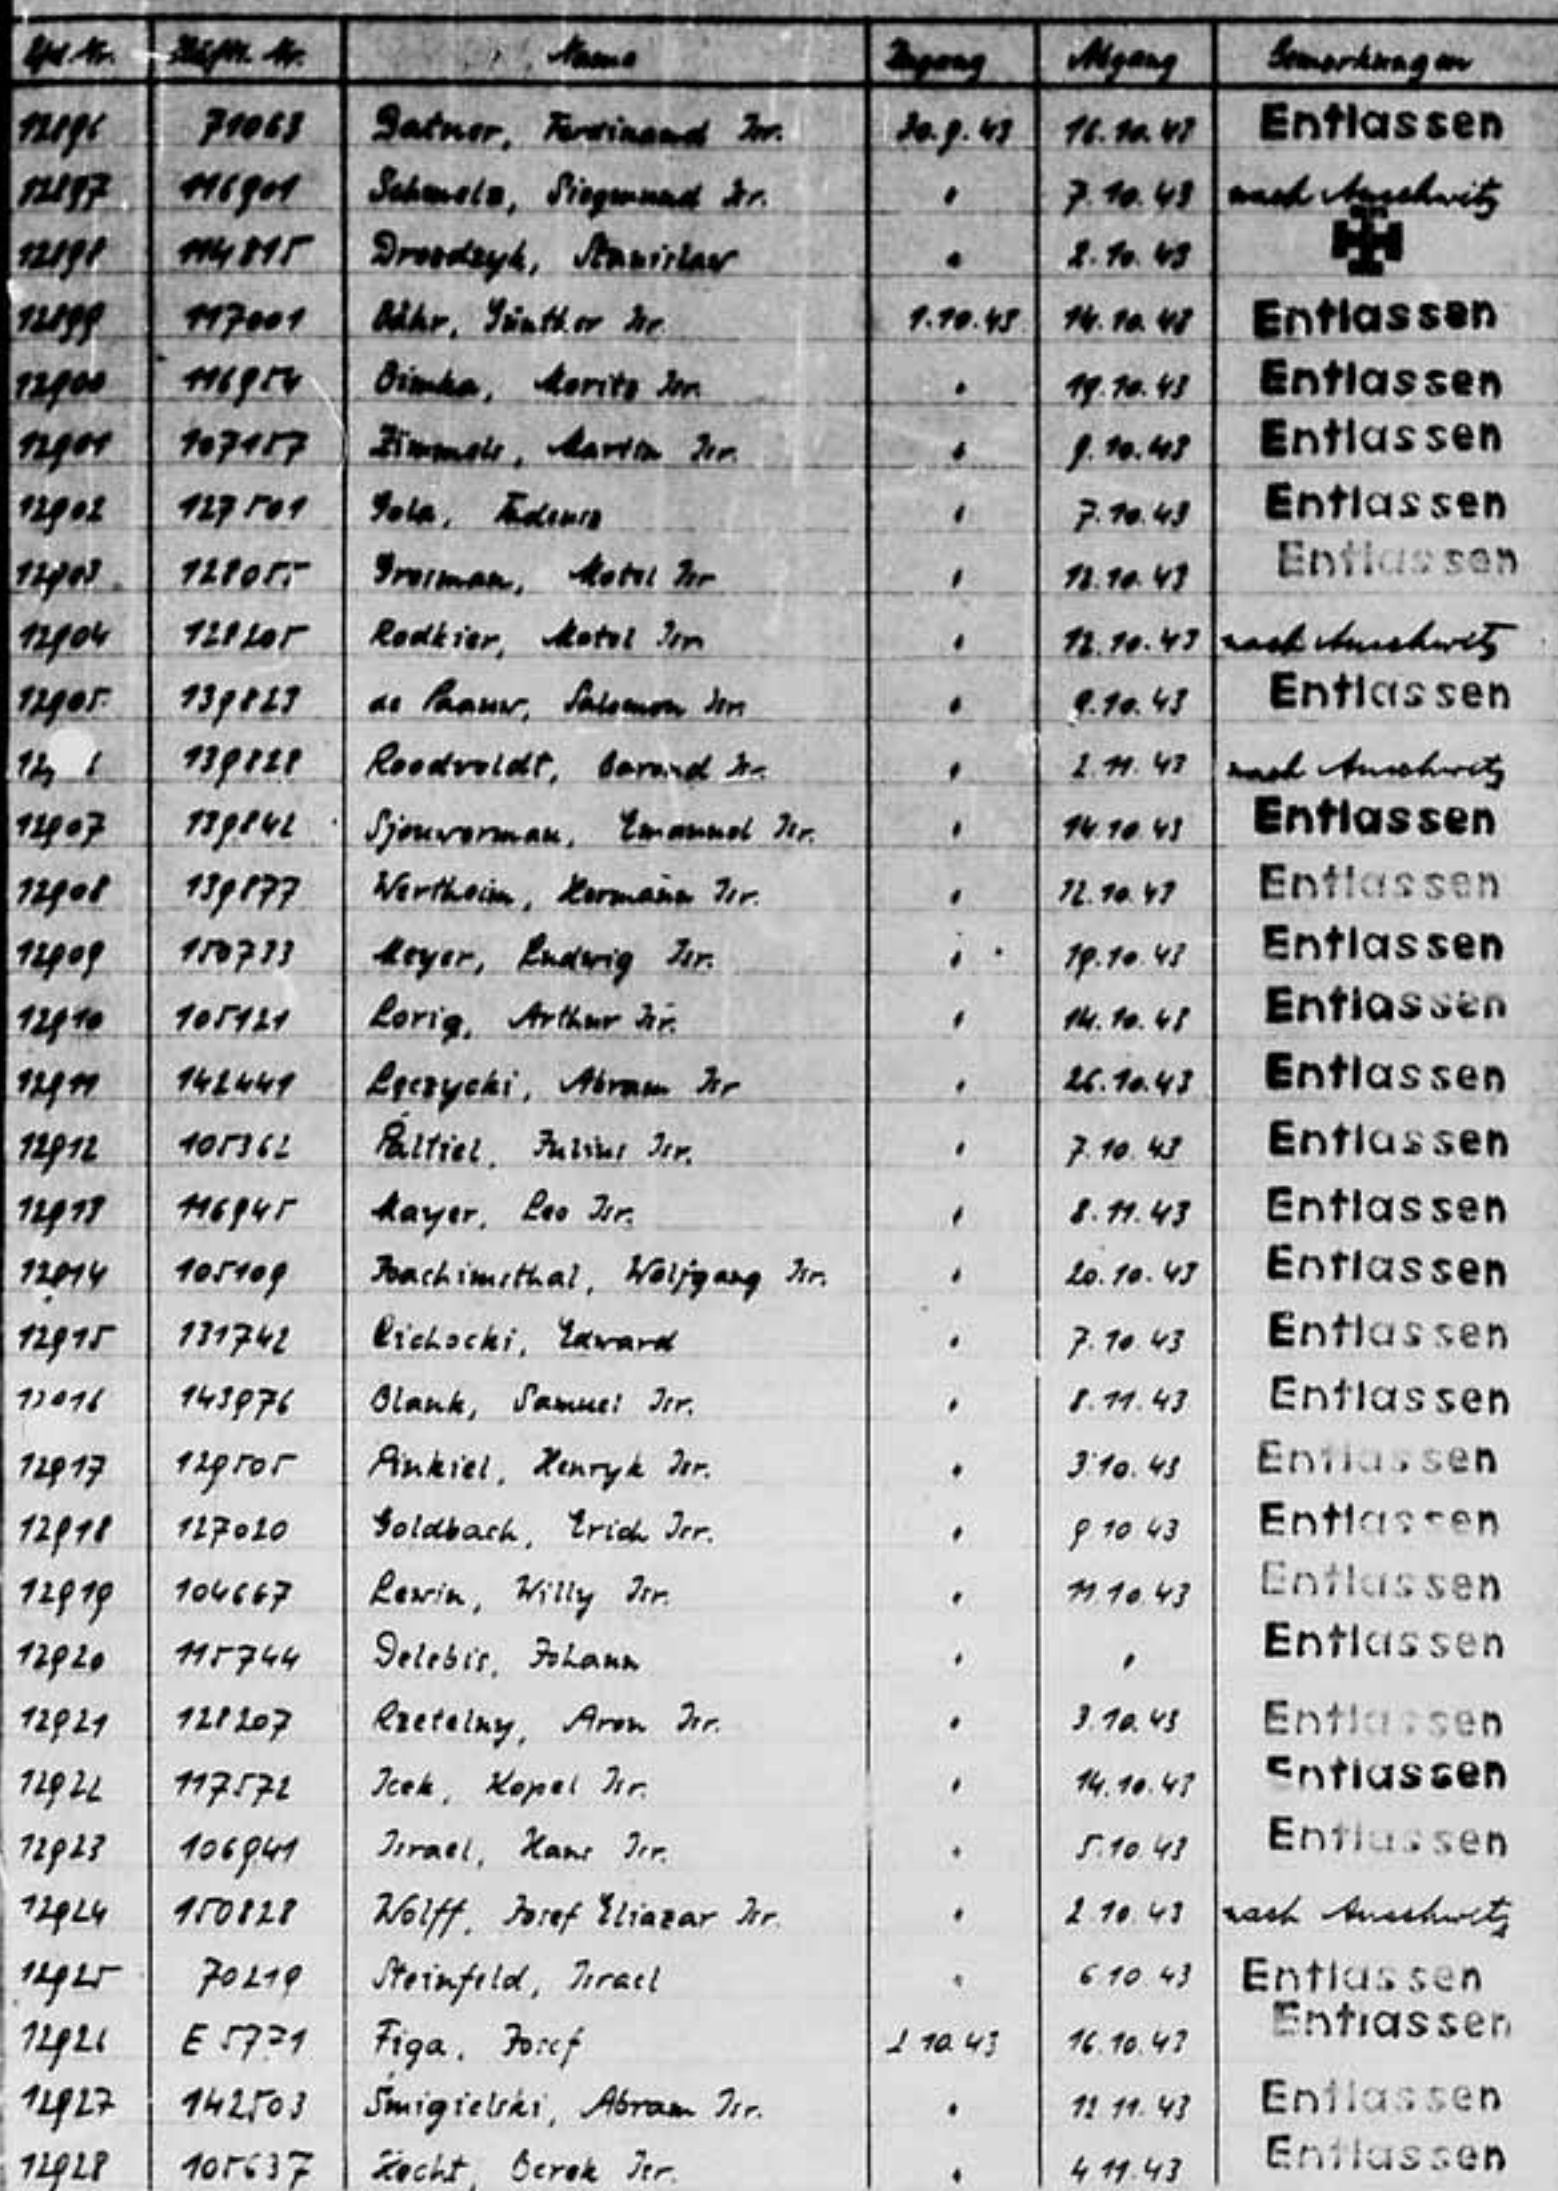 Lfd. Nr. Häftl. Nr. Name Zugang Abgang Bemerkungen
12896 71063 Gatner, Ferdinand Isr. 30.9.43 16.10.43 Entlassen
12897 116901 Schmelz, Siegmund Isr. " 7.10.43 nach Auschwitz
12898 114815 Drozdzyk, Stanislaw " 2.10.43
12899 117001 Bähr, Günther Isr. 1.10.43 14.10.43 Entlassen
12900 116954 Simka, Moritz Isr. " 19.10.43 Entlassen
12901 107157 Zimmels, Martin Isr. " 9.10.43 Entlassen
12902 127501 Gola, Tadeusz " 7.10.43 Entlassen
12903 128055 Grosman, Motel Isr " 12.10.43 Entlassen
12904 128205 Rodkier, Motel Isr. " 12.10.43 nach Auschwitz
12905 139823 de Paauw, Salomon Isr. " 9.10.43 Entlassen
139828 Roodveldt, Barend Isr. " 2.11.43 nach Auschwitz
12907 139842 Sjouwerman, Emanuel Isr. " 14.10.43 Entlassen
12908 139877 Wertheim, Hermann Isr. " 12.10.43 Entlassen
12909 150733 Meyer, Ludwig Isr. " 19.10.43 Entlassen
12910 105121 Lorig, Arthur Isr. " 14.10.43 Entlassen
12911 142441 Lęczycki, Abram Isr " 26.10.43 Entlassen
12912 105362 Paltiel, Julius Isr. " 7.10.43 Entlassen
12913 116945 Mayer, Leo Isr. " 8.11.43 Entlassen
12914 105109 Joachimsthal, Wolfgang Isr. " 20.10.43 Entlassen
12915 131742 Cichocki, Edward " 7.10.43 Entlassen
12916 143976 Blank, Samuel Isr. " 8.11.43 Entlassen
12917 129505 Pinkiel, Henryk Isr. " 3.10.43 Entlassen
12918 127020 Goldbach, Erich Isr. " 9.10.43 Entlassen
12919 104667 Lewin, Willy Isr. " 11.10.43 Entlassen
12920 115744 Delebis, Johann " " Entlassen
12921 128207 Rzetelny, Aron Isr. " 3.10.43 Entlassen
12922 117572 Icek, Kopel Isr. " 14.10.43 Entlassen
12923 106941 Israel, Hans Isr. " 5.10.43 Entlassen
12924 150828 Wolff, Josef Eliazar Isr. " 2.10.43 nach Auschwitz
12925 70219 Steinfeld, Israel " 6.10.43 Entlassen
12926 E 5771 Figa, Josef 2.10.43 16.10.43 Entlassen
12927 142503 Śmigielski, Abram Isr. " 12.11.43 Entlassen
12928 105637 Hecht, Berek Isr. " 4.11.43 Entlassen